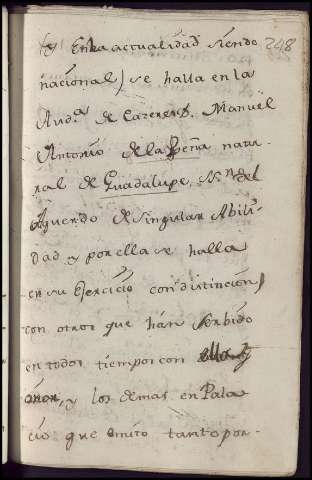 y En la actualidad siendo 248
nacional) se halla en la
Aud.ª de Cazeres D. Manuel
Antonio de la Peña natu-
ral de Guadalupe, S.ⁿ del
Aquerdo de singular Abili-
dad y por ella se halla
en su Ejercicio con distincion,
con otros que hán Serbido
en todos tiempos con
onor, y los demas en Pala
cio que omito tanto por-